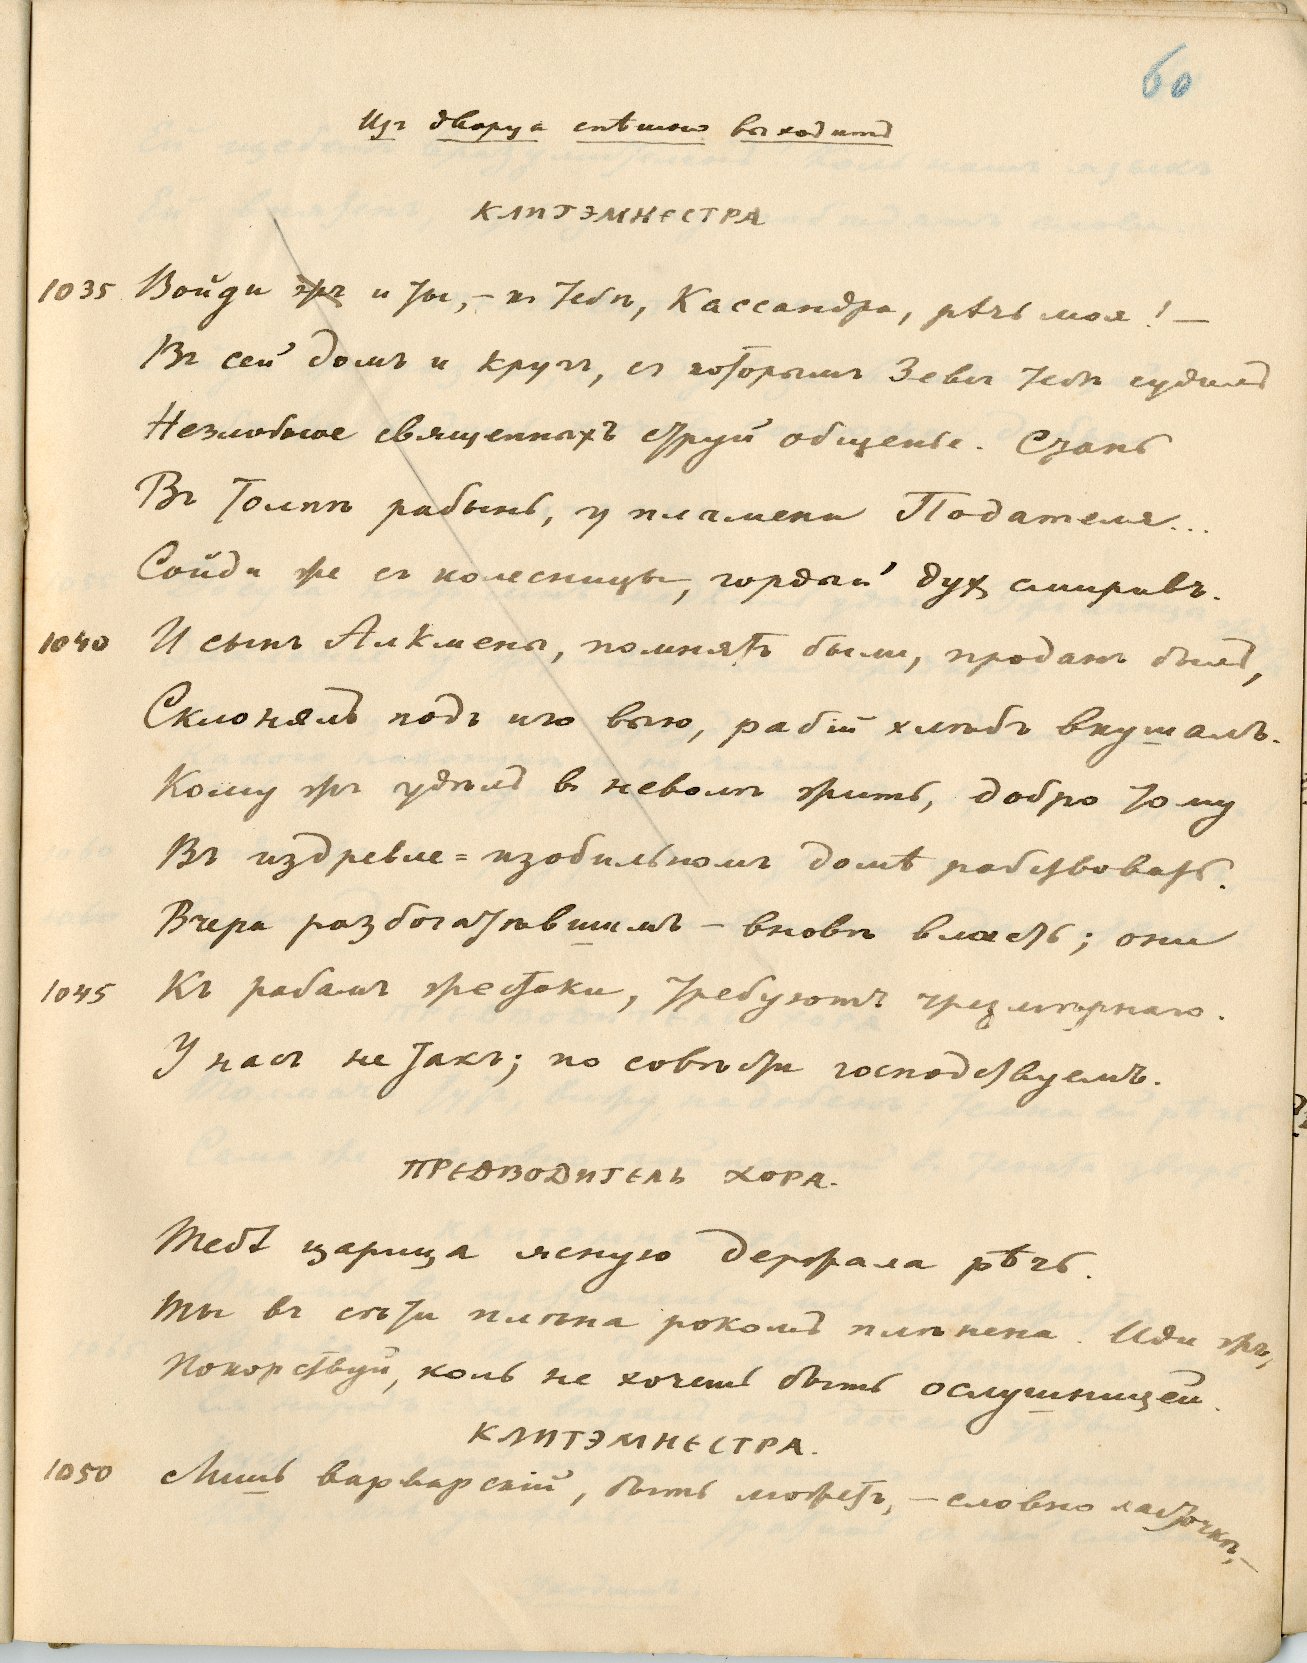 60
Изъ дворца спѣшно выходитъ
КЛИТЭМНЕСТРА
1035 Войди жъ и ты, – къ тебѣ, Кассандра, рѣчь моя! –
Въ сей домъ и кругъ, съ которымъ Зевсъ тебѣ судилъ
Незлобное священныхъ струй общенье. Стань
Въ толпѣ рабынь, у пламени Подателя...
Сойди же съ колесницы, гордый духъ смиривъ.
1040 И сынъ Алкмены, помнятъ были, проданъ былъ,
Склонялъ подъ иго выю, рабій хлѣбъ вкушалъ.
Кому жъ удѣлъ въ неволѣ жить, добро тому
Въ издревле=изобильномъ домѣ рабствовать.
Вчера разбогатѣвшимъ – вновѣ власть; они
1045 Къ рабамъ жестоки, требуютъ чрезмѣрнаго.
У насъ не такъ; по совѣсти господствуемъ.
ПРЕДВОДИТЕЛЬ ХОРА.
Тебѣ царица ясную держала рѣчь.
Ты въ сѣти плѣна рокомъ плѣнена. Иди жъ,
Покорствуй, коль не хочешь быть ослушницей.
КЛИТЭМНЕСТРА.
1050 Лишь варварскій, быть можетъ, – словно ласточкѣ, –